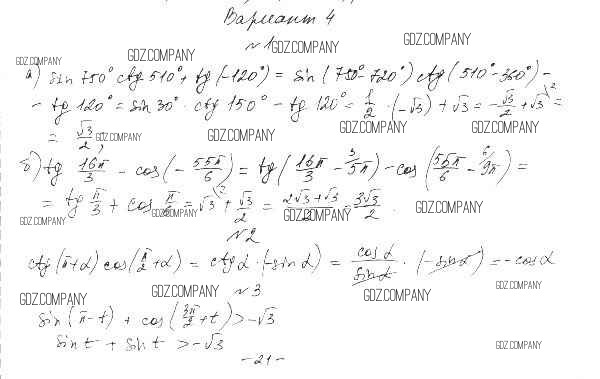 Вариант 4
№1 GDZ.COMPANY GDZ.COMPANY
GDZ.COMPANY GDZ.COMPANY
а) sin 750° ctg 510° + tg (-120°) = sin (750°-720°) ctg (510°-360°) -
- tg 120° = sin 30° · ctg 150° - tg 120° = 1/2 · (-√3) + √3 = -√3/2 + √3 \2 =
GDZ.COMPANY GDZ.COMPANY
= √3/2; GDZ.COMPANY GDZ.COMPANY
б) tg 16π/3 - cos(-55π/6) = tg (16π/3 - \3 5π) - cos (55π/6 - \6 9π) =
= tg π/3 + cos π/6 = √3 \2 + √3/2 = 2√3+√3/2 = 3√3/2 . GDZ.COMPANY
GDZ.COMPANY GDZ.COMPANY GDZ.COMPANY
№2
ctg (π+α) cos (π/2 + α) = ctg α · (-sin α) = cos α/sin α · (-sin α) = -cos α
GDZ.COMPANY
GDZ.COMPANY GDZ.COMPANY №3 GDZ.COMPANY
sin (π-t) + cos (3π/2 + t) > -√3
sin t + sin t > -√3 GDZ.COMPANY
-21-